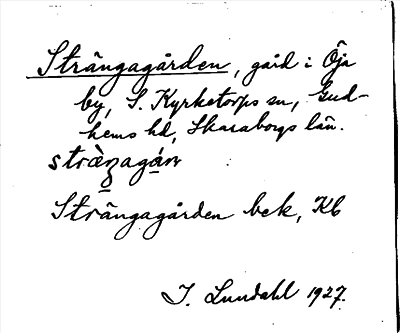 Strängagården, gård i Öja
by, S. Kyrketorps sn, Gud-
hems hd, Skaraborgs län.
stràŋagán
Strängagården bek, Kb
I. Lundahl 1927.